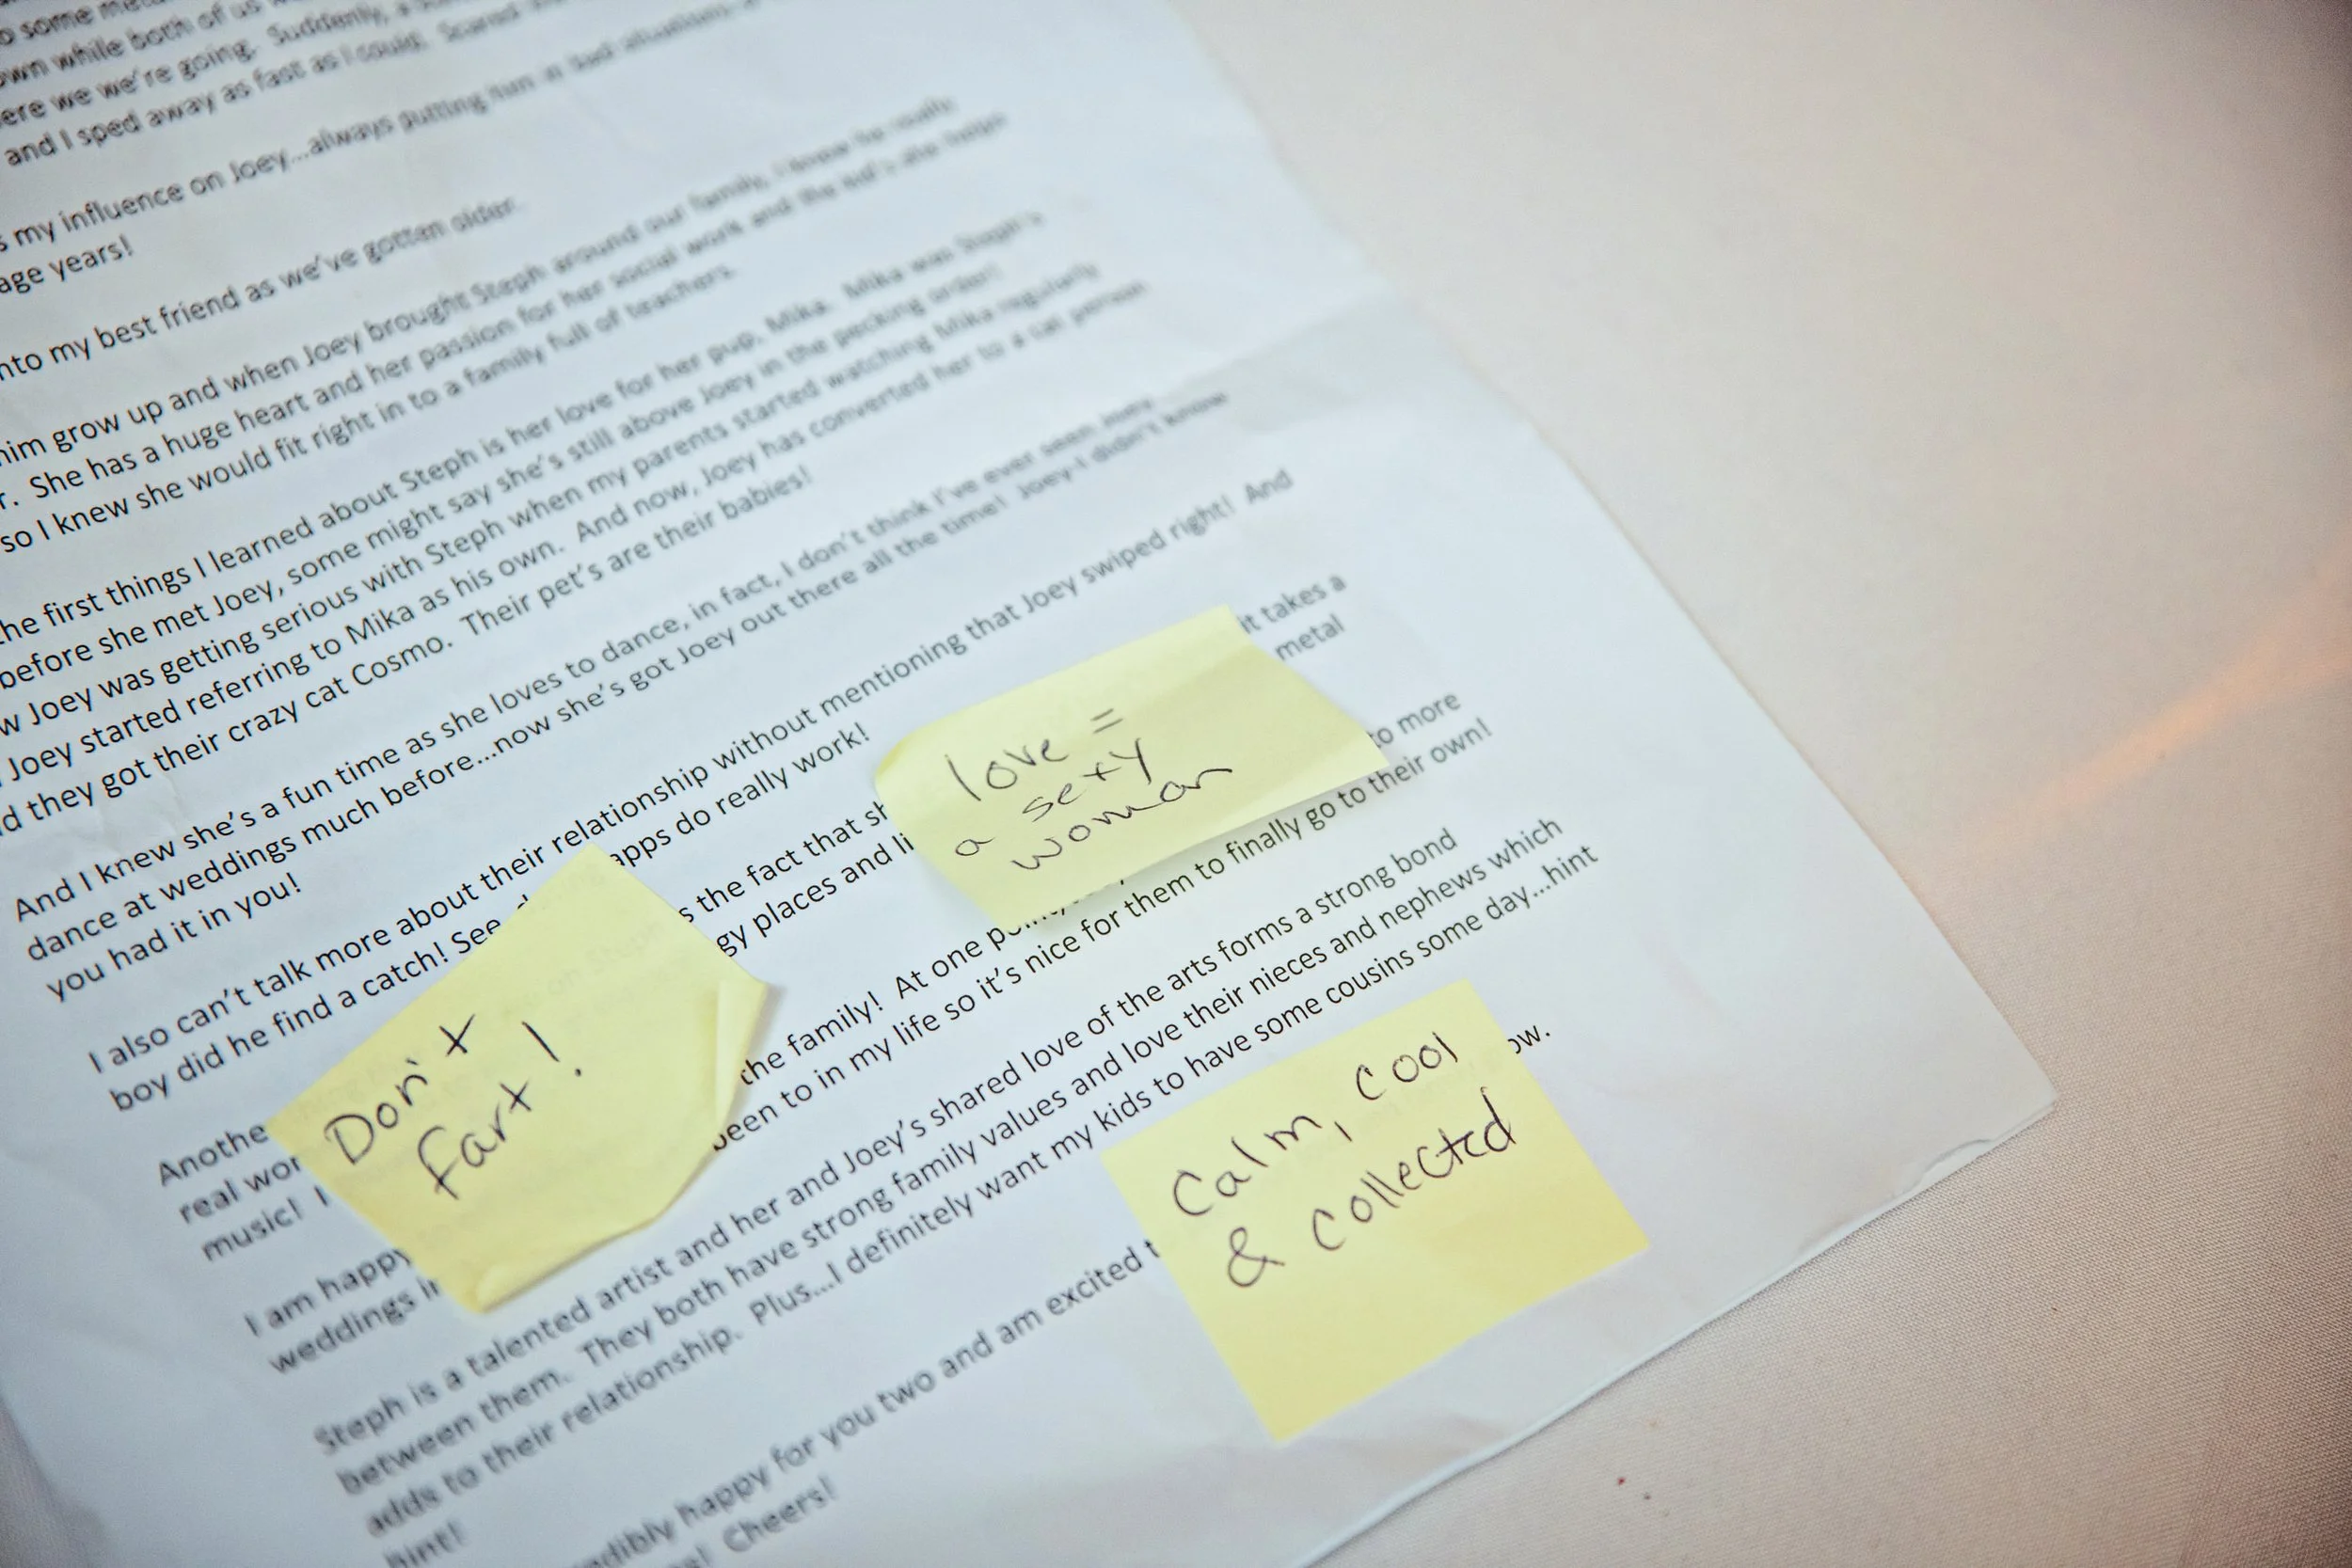 own while both of us
ere we we're going. Suddenly, a
and I sped away as fast as I could. Scared
s my influence on Joey...always putting him in bad situations
age years!
nto my best friend as we've gotten older.
him grow up and when Joey brought Steph around our family, I knew he really
r. She has a huge heart and her passion for her social work and the kid's she helps
so I knew she would fit right in to a family full of teachers.
the first things I learned about Steph is her love for her pup, Mika. Mika was Steph's
before she met Joey, some might say she's still above Joey in the pecking order!
w Joey was getting serious with Steph when my parents started watching Mika regularly
Joey started referring to Mika as his own. And now, Joey has converted her to a cat person
d they got their crazy cat Cosmo. Their pet's are their babies!
And I knew she's a fun time as she loves to dance, in fact, I don't think I've ever seen Joey
dance at weddings much before...now she's got Joey out there all the time! Joey-I didn't know
you had it in you!
I also can't talk more about their relationship without mentioning that Joey swiped right! And
boy did he find a catch! See, dating apps do really work!
Anothe s the fact that sh it takes a
real wor gy places and li metal
music! I
I am happy the family! At one point, to more
weddings in been to in my life so it's nice for them to finally go to their own!
Steph is a talented artist and her and Joey's shared love of the arts forms a strong bond
between them. They both have strong family values and love their nieces and nephews which
adds to their relationship. Plus...I definitely want my kids to have some cousins some day...hint
hint!
edibly happy for you two and am excited t ow.
Cheers!
love =
a sexy
woman
Don't
fart!
Calm, cool
& collected